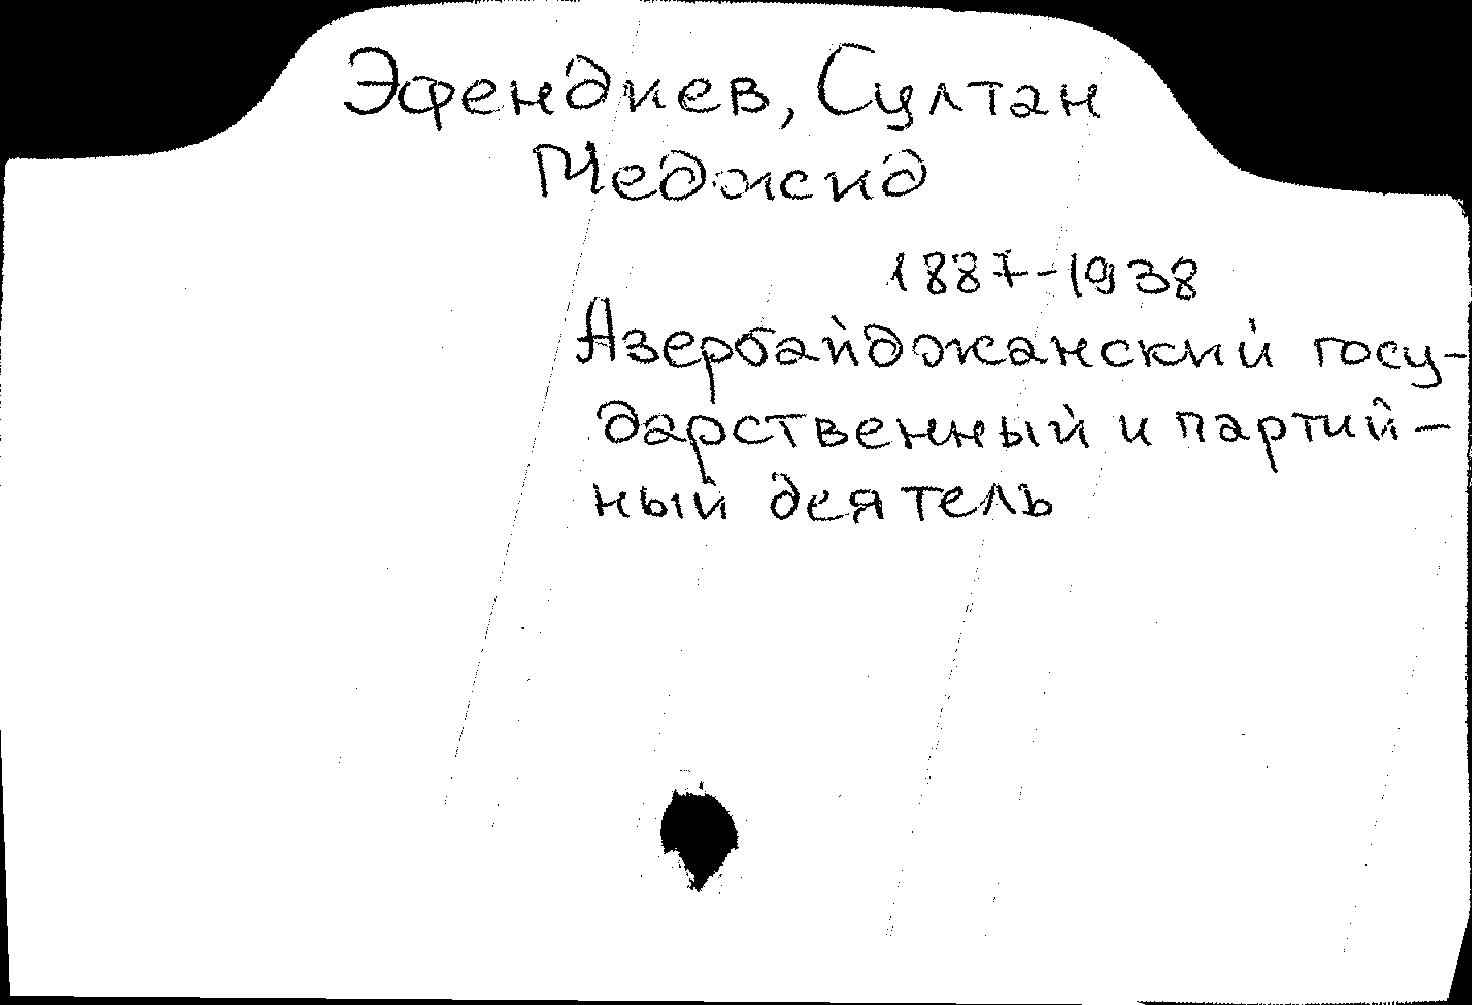 Эфендиев, Султан
Меджид
1887-1938
Азербайджанский госу-
дарственный и партий-
ный деятель